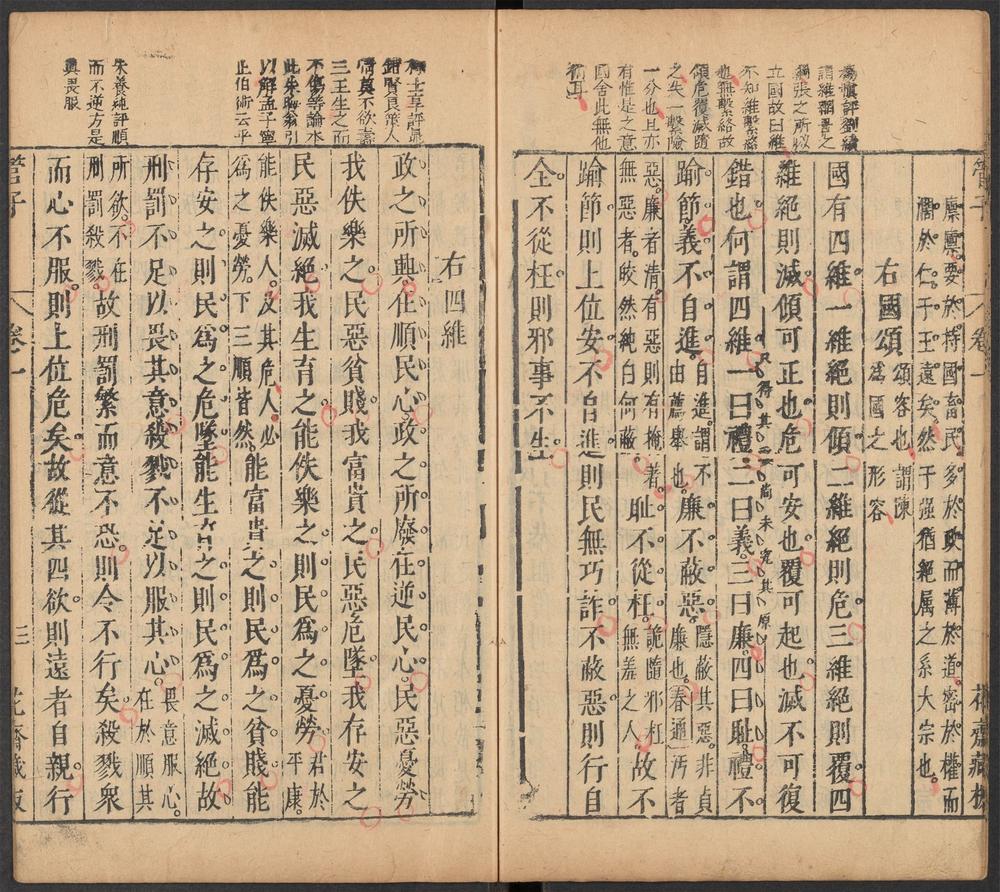 管子
卷一
花齋藏板
廩。要於持國畜民。多於政而薄於道。密於權而
濶於仁。于王遠矣。然于强猶絕属之系大宗也。
右國頌 頌容也。謂陳
為國之形容
國有四維。一維絕則傾。二維絕則危。三維絕則覆。四
維絕則滅。傾可正也。危可安也。覆可起也。滅不可復
錯也。何謂四維。一曰禮。二曰義。三曰廉。四曰耻。禮不
踰節。義不自進。自進。謂不
由薦舉也。廉不蔽惡。隱蔽其惡。非貞
廉也。春通。汚者
惡。廉者清。有惡則有掩
無惡者。皎然純白何蔽者。耻不從枉。詭隨邪枉。
無羞之人故不
踰節則上位安。不自進則民無巧詐。不蔽惡則行自
全。不從枉則邪事不生。
右四維
政之所興。在順民心。政之所廢。在逆民心。民惡憂勞
我佚樂之。民惡貧賤。我富貴之。民惡危墜。我存安之
民惡滅絕。我生育之。能佚樂之。則民為之憂勞。君於
平康。
能佚樂人。及其危人。必
為之憂勞。下三順皆然能富貴之。則民為之貧賤。能
存安之。則民為之危墜。能生育之。則民為之滅絕。故
刑罰不足以畏其意。殺戮不足以服其心。畏意服心。
在於順其
所欲。不在
刑罰殺戮。故刑罰繁而意不恐。則令不行矣。殺戮衆
而心不服。則上位危矣。故從其四欲。則遠者自親。行
管子
卷一
三
花齋藏板
綱張之所以
立國故曰維
不知維繫絡
也無繫絡故
傾危覆滅隨
之失一繫險
一分也且亦
有惟是之意
國舍此無他
三王生之而
不傷等論本
此朱晦翁引
以解孟子寧
止伯術云乎
朱養純評順
而不逆方是
眞畏服